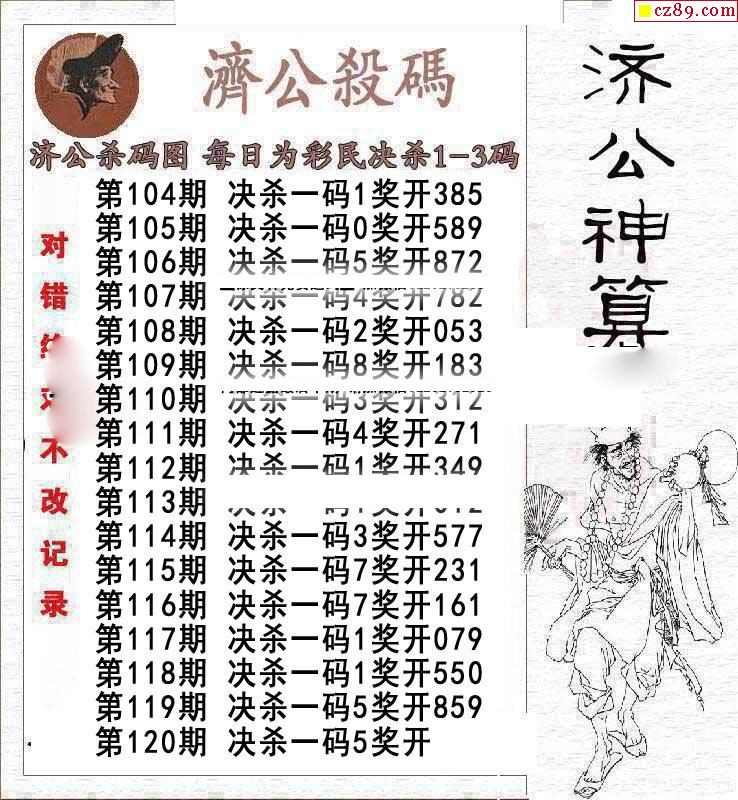 cz89.com
濟公殺碼
济公杀码图 每日为彩民决杀1-3码
第104期 决杀一码1奖开385
第105期 决杀一码0奖开589
第106期 决杀一码5奖开872
第107期 决杀一码4奖开782
第108期 决杀一码2奖开053
第109期 决杀一码8奖开183
第110期 决杀一码3奖开312
第111期 决杀一码4奖开271
第112期 决杀一码1奖开349
第113期
第114期 决杀一码3奖开577
第115期 决杀一码7奖开231
第116期 决杀一码7奖开161
第117期 决杀一码1奖开079
第118期 决杀一码1奖开550
第119期 决杀一码5奖开859
第120期 决杀一码5奖开
对错
不改记录
济公神算